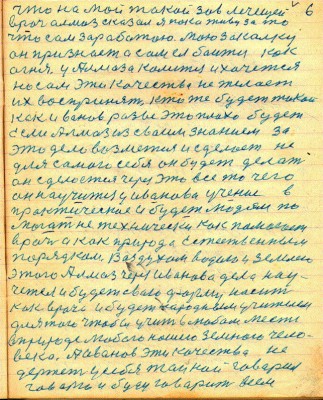 6
что на мой такой зов лечущей
врач алмаз сказал я пока живу за то
что сам заработаю. мою закалку
он признает а сам ея боится как
огня. у Алмаза комиться хочется
но сам эти качества не желает
их воспринять. кто же будет такой
как Иванов разве это плохо будет
если Алмаз из своим знанием за
это дело возмется и сделает не
для самого себя он будет делат
он сделается через это все то чего
он научится у иванова учение в
практическое и будет людям по
могат не технически как помогает
врач а как природа естественным
порядком Воздухом водою и землею
этого Алмаз через иванова дела нау
чится и будет свою форму носит
как врач и будет народным учителем
для того чтобы учить в любом месте
в природе любого нашего земного чело-
века. А иванов эти качества не
держет у себя тайной говорил
говарю и буду говарит всем